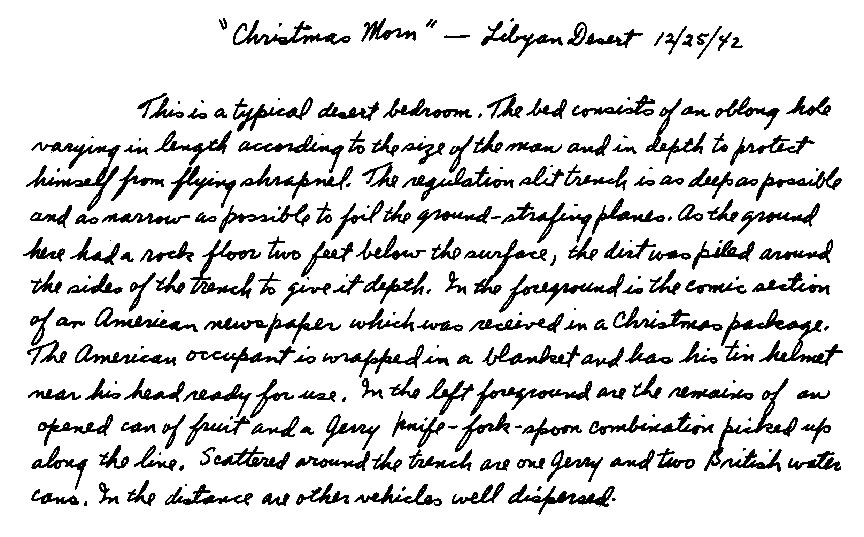 "Christmas Morn" — Libyan Desert 12/25/42
This is a typical desert bedroom. The bed consists of an oblong hole
varying in length according to the size of the man and in depth to protect
himself from flying shrapnel. The regulation slit trench is as deep as possible
and as narrow as possible to foil the ground-strafing planes. As the ground
here had a rock floor two feet below the surface, the dirt was piled around
the sides of the trench to give it depth. In the foreground is the comic section
of an American newspaper which was received in a Christmas package.
The American occupant is wrapped in a blanket and has his tin helmet
near his head ready for use. In the left foreground are the remains of an
opened can of fruit and a Gerry knife-fork-spoon combination picked up
along the line. Scattered around the trench are one Gerry and two British water
cans. In the distance are other vehicles well dispersed.